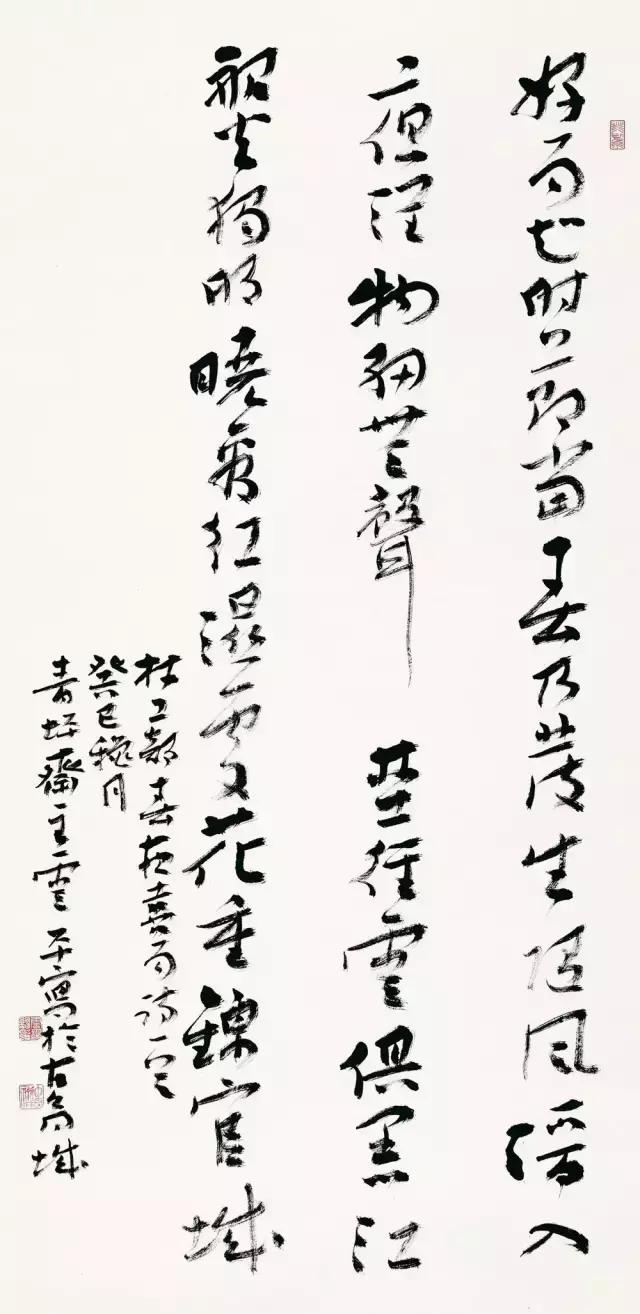 好雨知时節當春乃發生随風潛入
夜潤物細無聲野徑雲俱黑江
船火獨明曉看紅濕處花重錦官城
杜工部春夜喜雨詩一首
癸巳穐月
青坪齋主雲平寫於古城